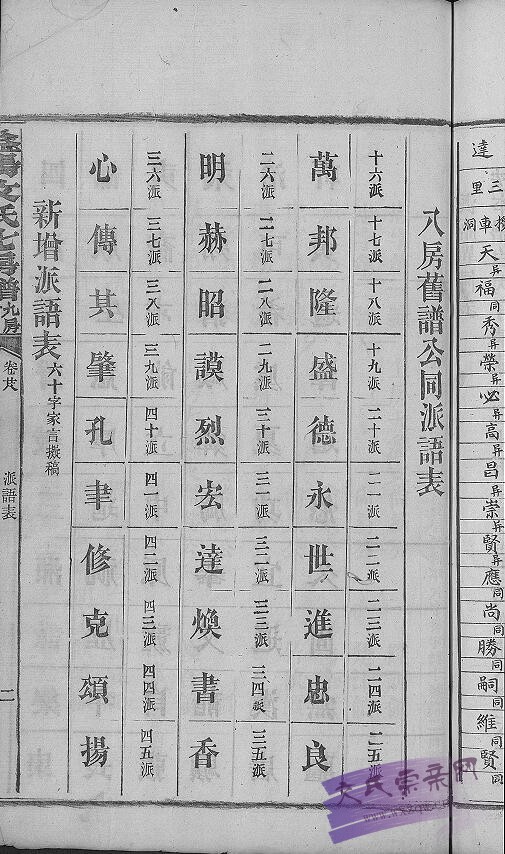 達三里機車洞天福秀榮必高昌崇賢應尚勝嗣維賢
異同異異異異異異異同同同同同同
八房舊譜公同派語表
十六派 十七派 十八派 十九派 二十派 二一派 二二派 二三派 二四派 二五派
萬邦隆盛德永世進忠良
二六派 二七派 二八派 二九派 三十派 三一派 三二派 三三派 三四派 三五派
明赫昭謨烈宏達煥書香
三六派 三七派 三八派 三九派 四十派 四一派 四二派 四三派 四四派 四五派
心傳其肇孔聿修克頌揚
新增派語表 六十字家言擬稿
文氏七房譜 九房
卷廿八
派語表
二
文氏宗亲网